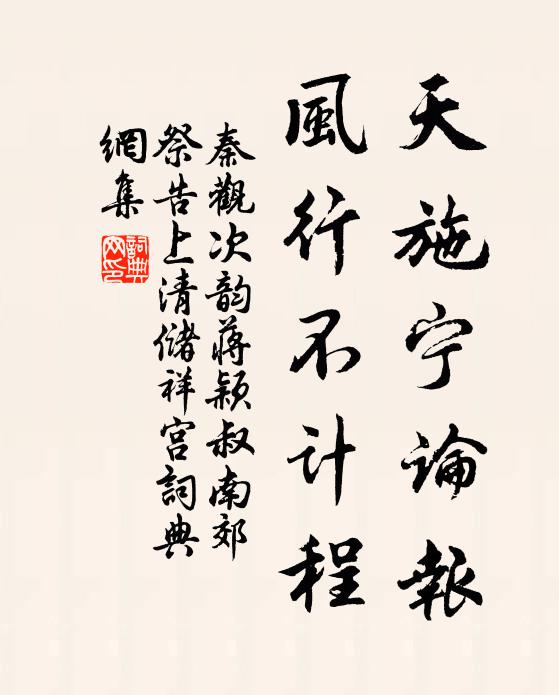 天施宁論報
風行不計程
秦觀次韵蔣穎叔南郊
祭告上清儲祥宮詞典
網集
詞典網印